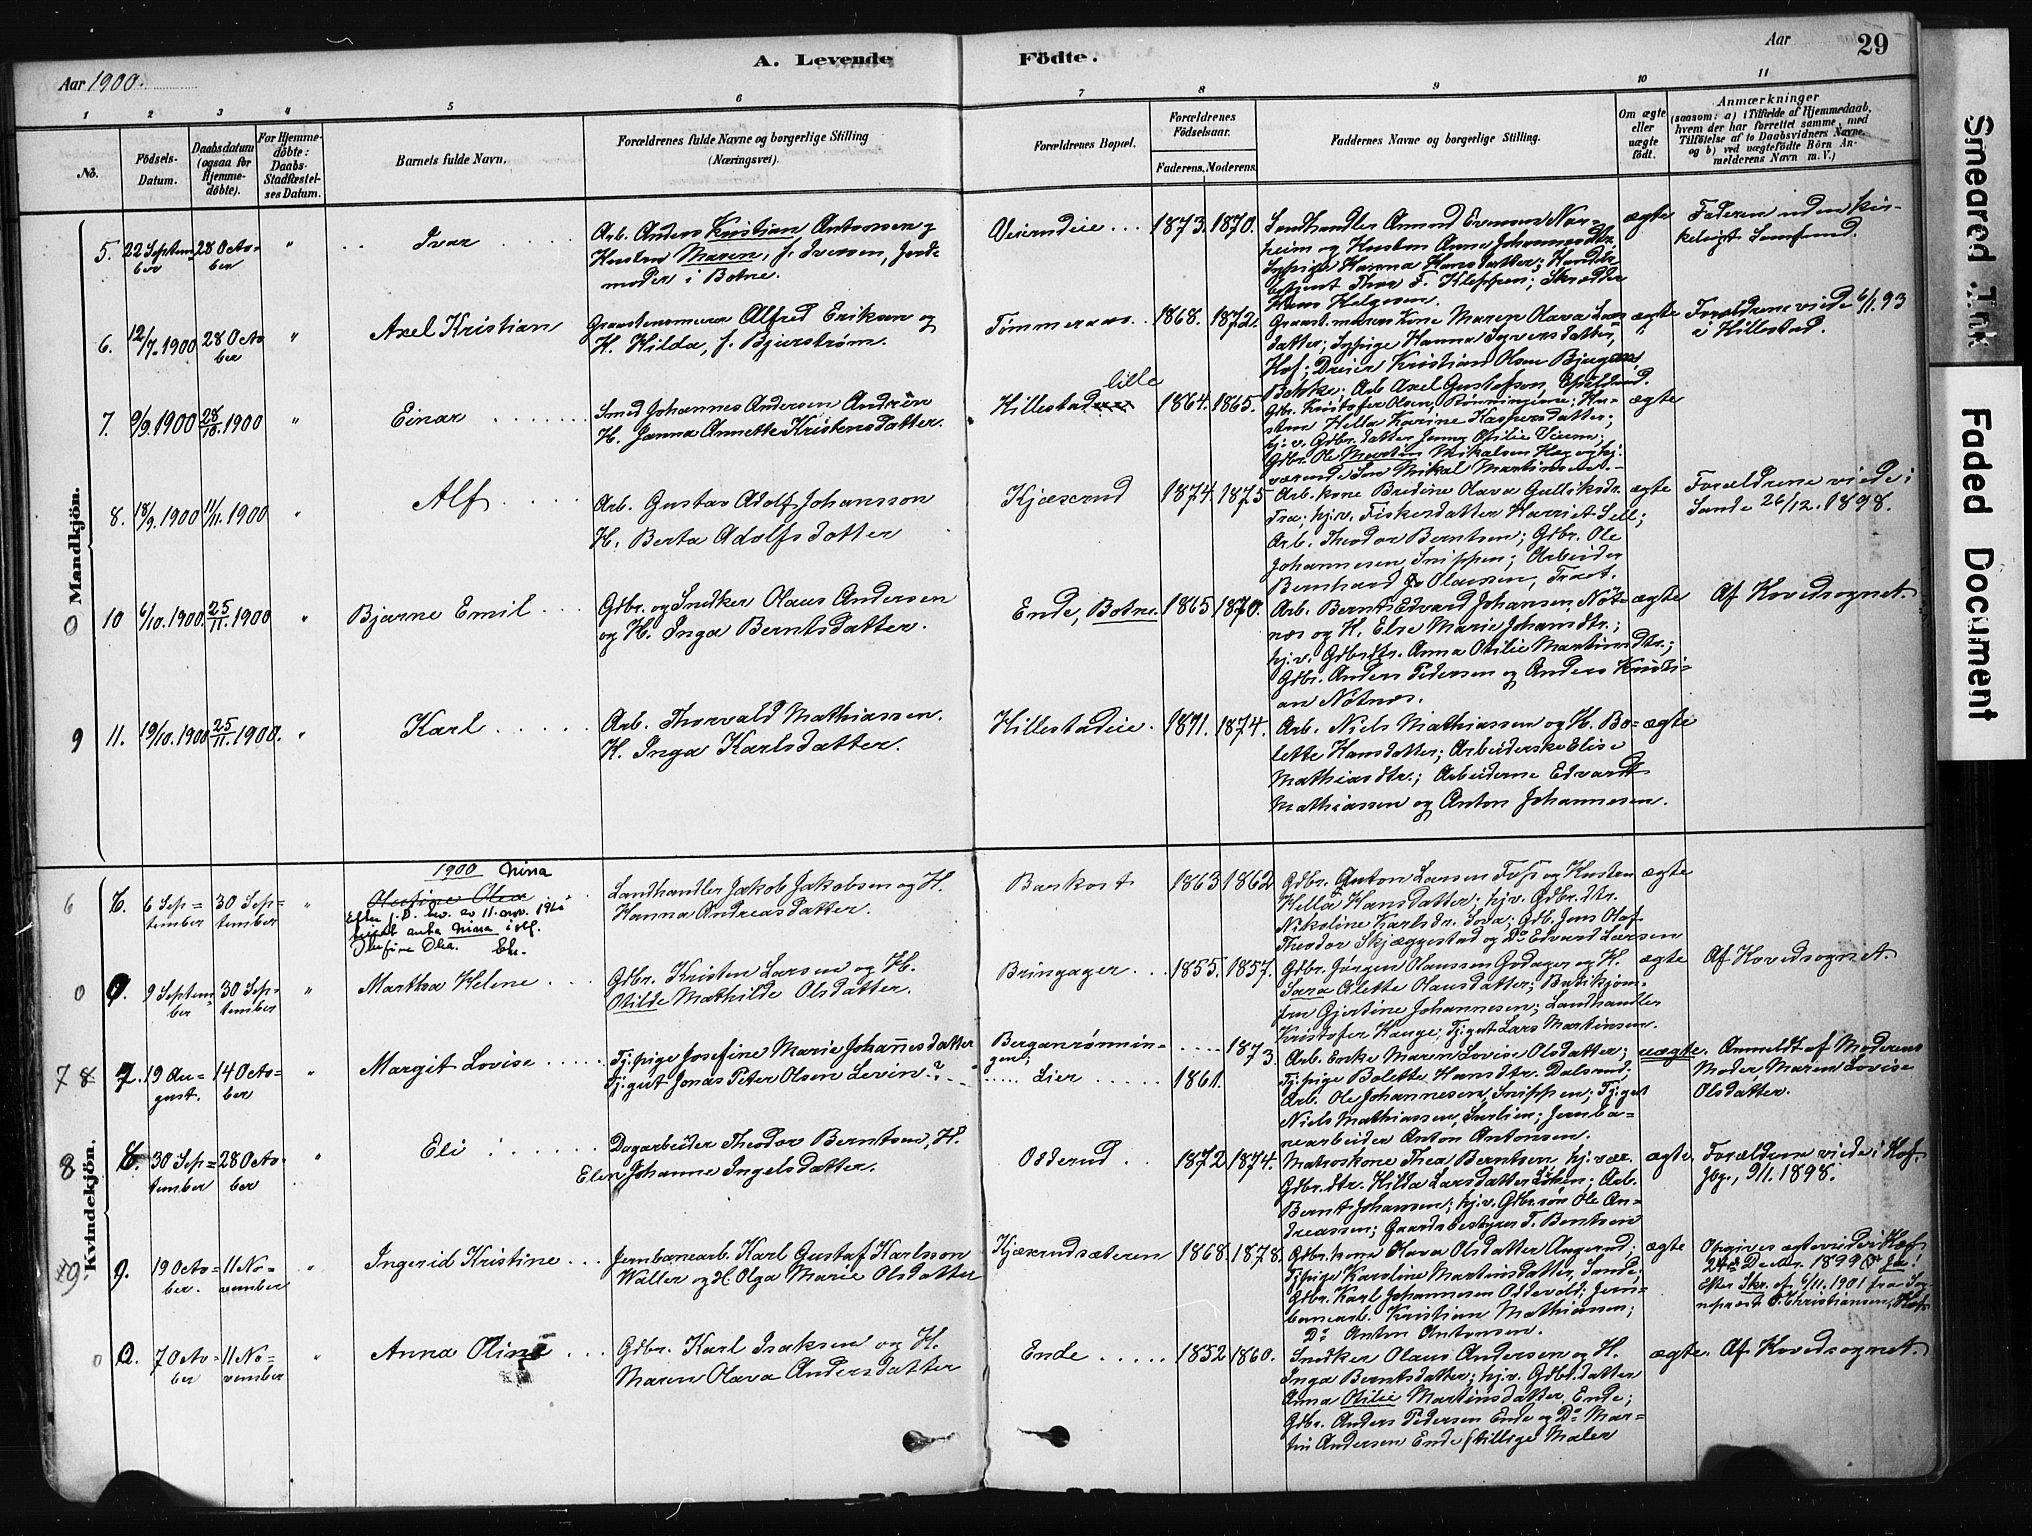 Aar 1900.
A. Levende Födte.
Aar 29
1 2 3 4 5 6 7 8 9 10 11
No.
Födsels-Datum.
Daabsdatum (ogsaa for Hjemme-döbte).
For Hjemme-döbte: Daabs-Stadfæstel-ses Datum.
Barnets fulde Navn.
Forældrenes fulde Navne og borgerlige Stilling (Næringsvei).
Forældrenes Bopæl.
Forældrenes Födselsaar.
Faderens. Moderens.
Faddernes Navne og borgerlige Stilling.
Om ægte eller uægte födt.
Anmærkninger
(saasom: a) i Tilfælde af Hjemmedaab, hvem der har forrettet samme, med Tilföielse af to Daabsvidners Navne, og b) ved uægtefödte Börn Anmelderens Navn m. V.)
Mandkjön.
5. 22 Septem-ber 28 Octo-ber " Ivar
Arb. Anders Kristian Antonsen og
Hustru Maren, f. Iversen, Jord-
moder i Botne.
Veierudeie 1873. 1870.
Landhandler Amund Evensen Nor-
heim og Hustru Anna Johannesdtr.
Sypige Hanna Hansdatter; Handels-
betjent Thor T. Kleppen; Skrædder
Hans Helgesen.
ægte
Faderen uden kir-
keligt Samfund.
6. 12/7. 1900 28 Octo-ber " Axel Kristian
Graastensmurer Alfred Eriksen og
H. Hilda, f. Bjurstrøm.
Tømmeraas. 1868. 1872.
Graast.murers Kone Maren Olava Lars-
datter; Sypige Hanna Syversdatter,
Hof; Dreier Kristian Olsen Bjugaas,
Botske; Arb. Axel Gustafson,
ægte
Forældrene viede 6/1. 93
i Hillestad.
7. 9/9. 1900 28/10. 1900 " Einar
Smed Johannes Andersen Andrén
H. Janna Annette Kristensdatter.
lille
Hillestad 1864. 1865.
Gdbr. Kristofer Olsen, Rønningen; Hu-
stru Hella Karine Kaspersdatter;
hj.v. Gdbr.datter Jenny Otilie Vierud;
Gdbr. Ole Martin Mikalsen Hag og hj.
værende Søn Mikal Martinsen.
ægte
8. 18/9. 1900 11/11. 1900 " Alf
Arb. Gustav Adolf Johansson
H. Berta Adolfsdatter
Kjæserud 1874. 1875
Arb.kone Bredine Olava Gulliksdr.
Fra; hj.v. Fiskersdatter Harriet Lell;
Arb. Theodor Berntsen; Gdbr. Ole
Johannesen Snippen; Arbeider
Bernhard Olaussen, Traet.
ægte
Forældrene viede i
Sande 26/12. 1898.
0 10 6/10. 1900. 25/11. 1900 " Bjarne Emil
Gdbr. og Snedker Olaus Andersen
og H. Inga Berntsdatter.
Ende, Botne. 1865 1870.
Arb. Bernt Edvard Johansen Nøt-
næs og H. Else Marie Johansdtr.;
hj.v. Gdbrdtr. Anna Otilie Martinsdtr.;
Gdbr. Anders Pedersen og Anders Kristi-
an Nøtnæs.
ægte
Af Hovedsognet.
9 11. 19/10. 1900 25/11. 1900. " Karl
Arb. Thorvald Mathiassen.
H. Inga Karlsdatter.
Hillestadeie. 1871. 1874.
Arb. Niels Mathiassen og H. Bo-
lette Hansdatter; Arbeiderske Elise
Mathiasdtr.; Arbeiderne Edvardt
Mathiassen og Anton Johannesen.
ægte
Kvindekjön.
1900 Nina
6 6. 6 Sep-tember 30 Sep-tember " Olufine Olea
Efter j.D. bev. av 11. nov. 1920
Nina i st. f.
Olufine Olea.
Landhandler Jakob Jakobsen og H.
Hanna Andreasdatter.
Barkost 1863 1862
Gdbr. Anton Larsen Fos og Hustru
Hella Hansdatter; hj.v. Gdbr.dtr.
Nikoline Karlsdr. Lova; Gdb. Jens Olaf
Theodor Skjæggestad og Do Edvard Larsen
ægte
0 9 Septem-ber 30 Sep-tember " Martha Helene
Gdbr. Kristen Larsen og H.
Otilde Mathilde Olsdatter.
Bringager 1855. 1857.
Gdbr. Jørgen Olaussen Godager og H.
Sara Olette Olausdatter; Butikjom-
fru Gjertine Johannesen; Landhandler
Kristofer Hauge; Tj.gut Lars Martinsen.
ægte
Af Hovedsognet.
78 7. 19 Au-gust. 14 Octo-ber " Margit Lovise
Tj.pige Josefine Marie Johannesdatter
Tj.gut Jonas Peter Olsen Levin?
Berganrønnin-gen; 1873.
Lier 1861.
Arb. Enke Maren Lovise Olsdatter;
Tj.pige Bolette Hansdtr. Dalsrud;
Arb. Ole Johannesen, Snippen; Tj.gut
Niels Mathiassen, Lurlien; Jernba-
nearbeider Anton Antonsen.
uægte.
Anmeldt af Moderens
Moder, Maren Lovise
Olsdatter.
8 8. 30 Sep-tember 28 Octo-ber " Eli
Dagarbeider Theodor Berntsen, H.
Elen Johanne Ingelsdatter.
Odderud 1872 1874.
Matroskone Thea Berntsen, hj.vær.
Gdbr.dtr. Hilda Larsdatter Løken; Arb.
Bernt Johansen; hj.v. Gdbr.søn Ole An-
dreassen; Gaardsbestyrer T. Berntsen
ægte
Forældrene viede i Hof.
Jbg., 9/1. 1898.
9 9. 19 Octo-ber. 11 No-vember " Ingerid Kristine
Jernbanearb. Karl Gustaf Karlsson
Waller og H. Olga Marie Olsdatter
Kjæserudsæteren 1868. 1878.
Gdbr.kone Olava Olsdatter Angerud;
Tj.pige Karoline Martinsdatter, Sande;
Gdbr. Karl Johannesen Oddevold; Jern-
banearb. Kristian Mathiassen;
Do Anton Antonsen.
ægte
Opgives ægteviede i Hof
24de Decbr. 1899. Ja!
Efter Skr. af 6/11. 1901 fra Sog-
nepræst O. Christiansen, Hof.
0 7 Octo-ber 11 No-vember " Anna Oline
Gdbr. Karl Isaksen og H.
Maren Olava Andersdatter
Ende 1852 1860.
Snedker Olaus Andersen og H.
Inga Berntsdatter; hj.v. Gdbr.datter
Anna Otilie Martinsdatter, Ende;
Gdbr. Anders Pedersen Ende og Do Mar-
tin Andersen Ende, tillige Maler
ægte.
Af Hovedsognet.
Smeared Ink
Faded Document